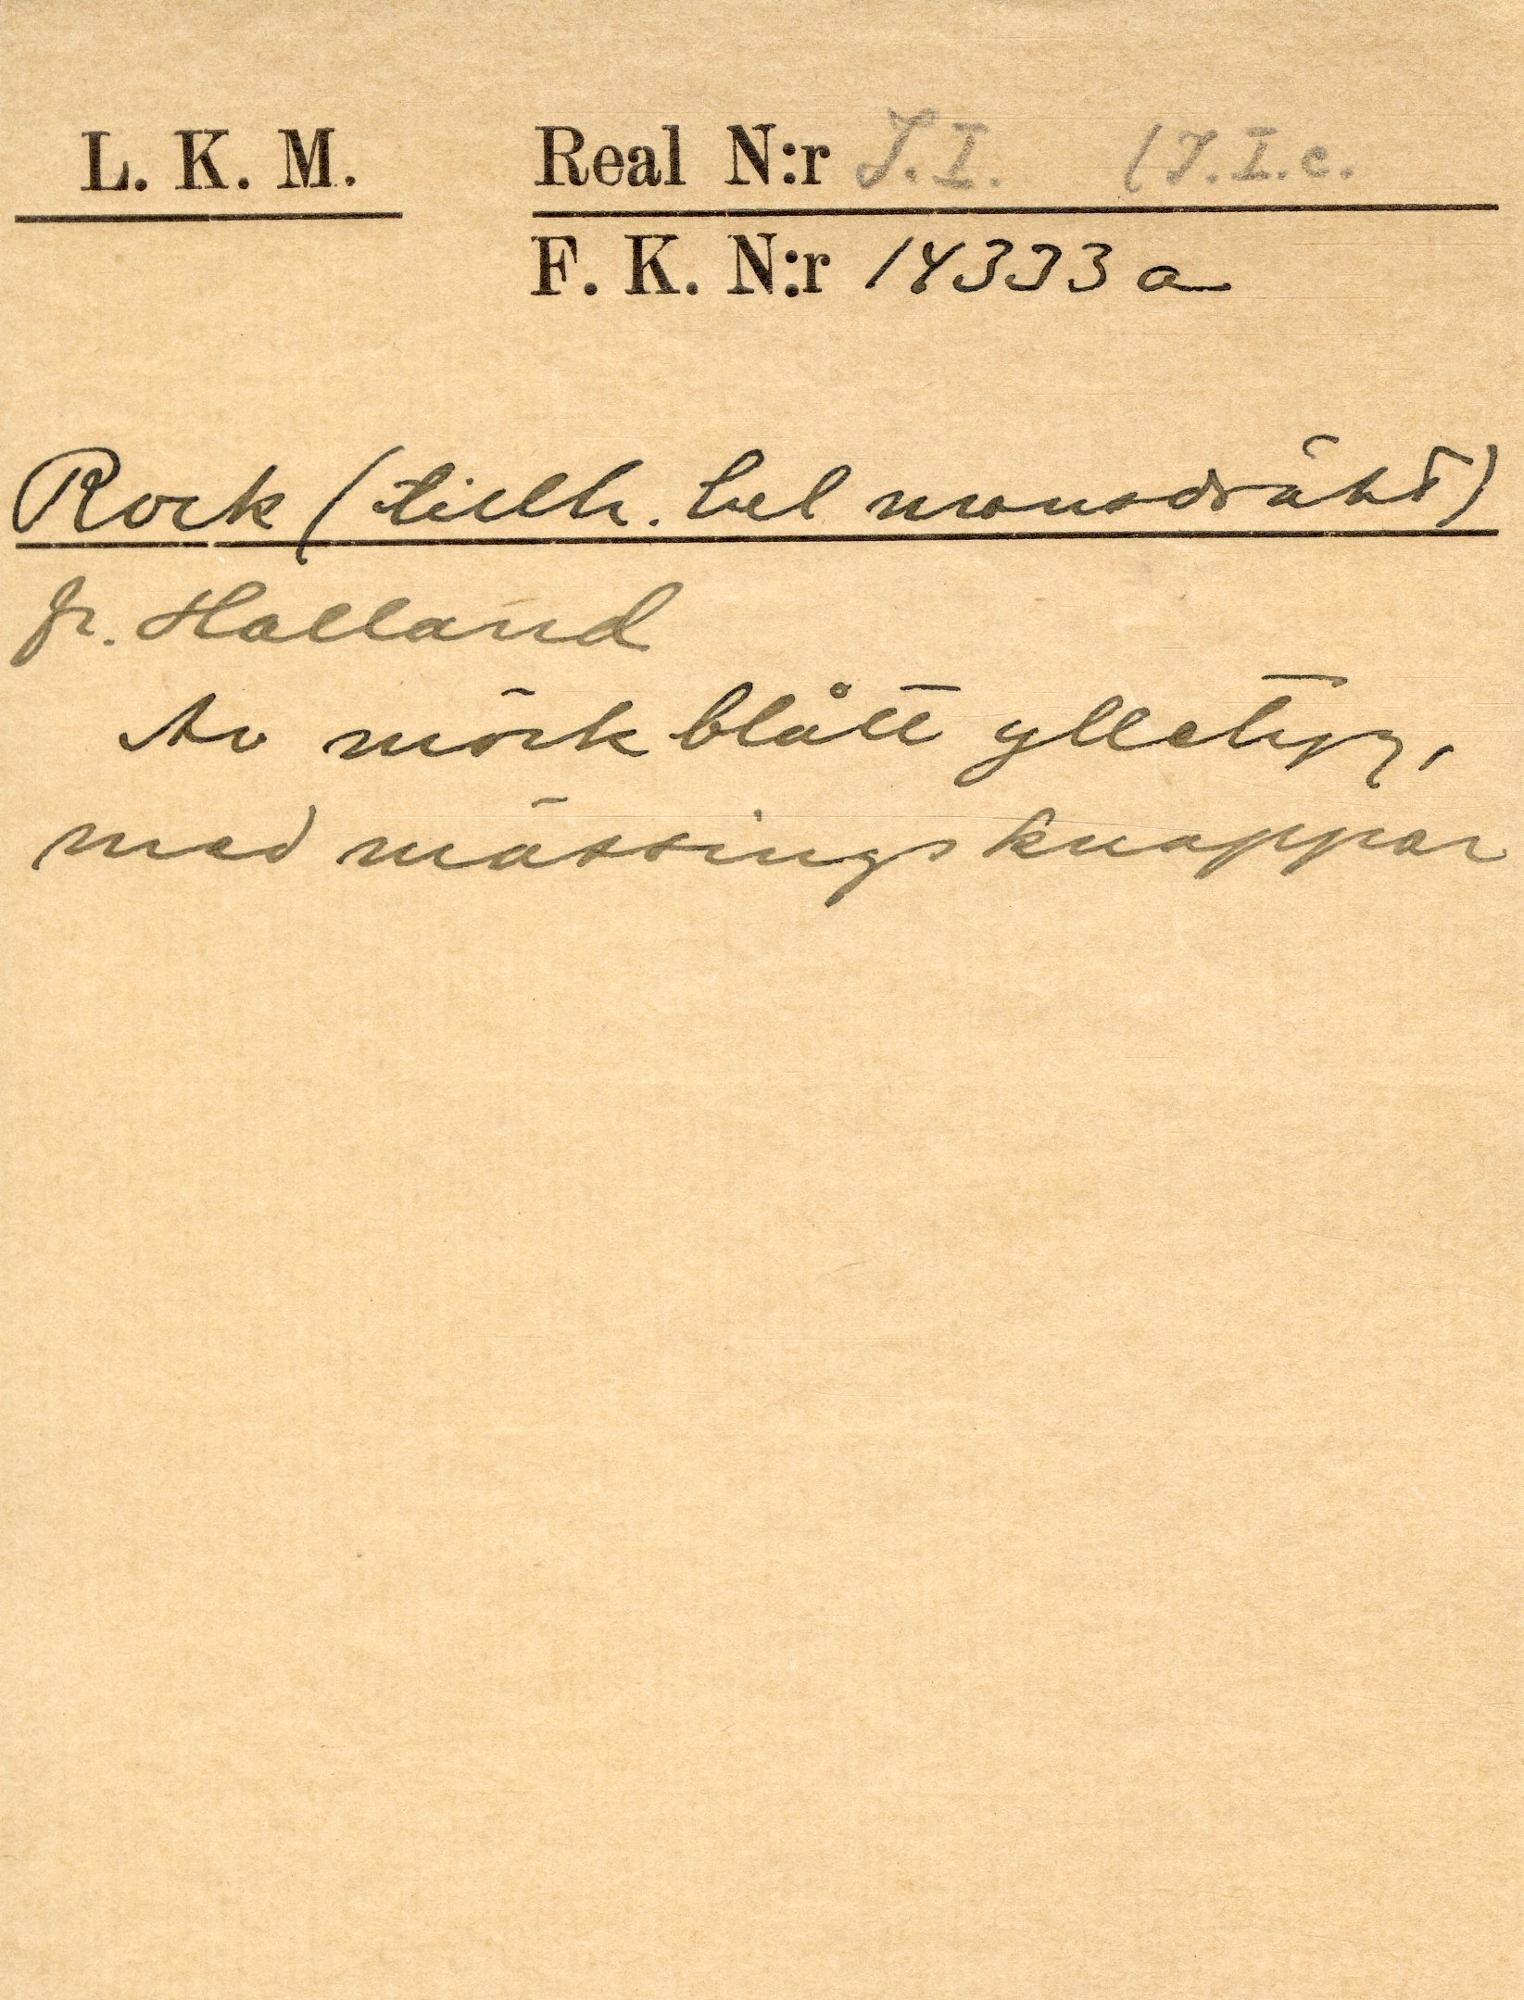 L. K. M. Real N:r J.I. (J.I.c.
F. K. N:r 14333 a
Rock (tillh. hel mansdräkt)
fr. Halland
Av mörkblått ylletyg,
med mässingsknappar